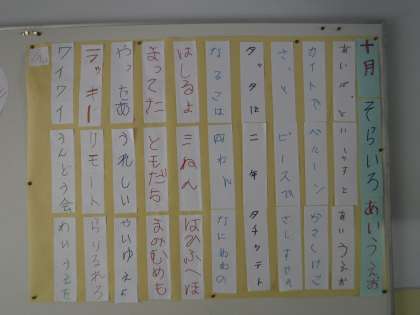 十月 そらいろ あいうえお
あいうえお
カイトで かきくけこ
ピースで さしすせそ
タッタは 二年 タチツテト
なるさは なにぬねの
はしるよ 三ねん はひふへほ
まってた ともだち まみむめも
やったあ うれしい やいゆえよ
ラッキー リモート らりるれろ
ワイワイ うんどう会 わいうえを